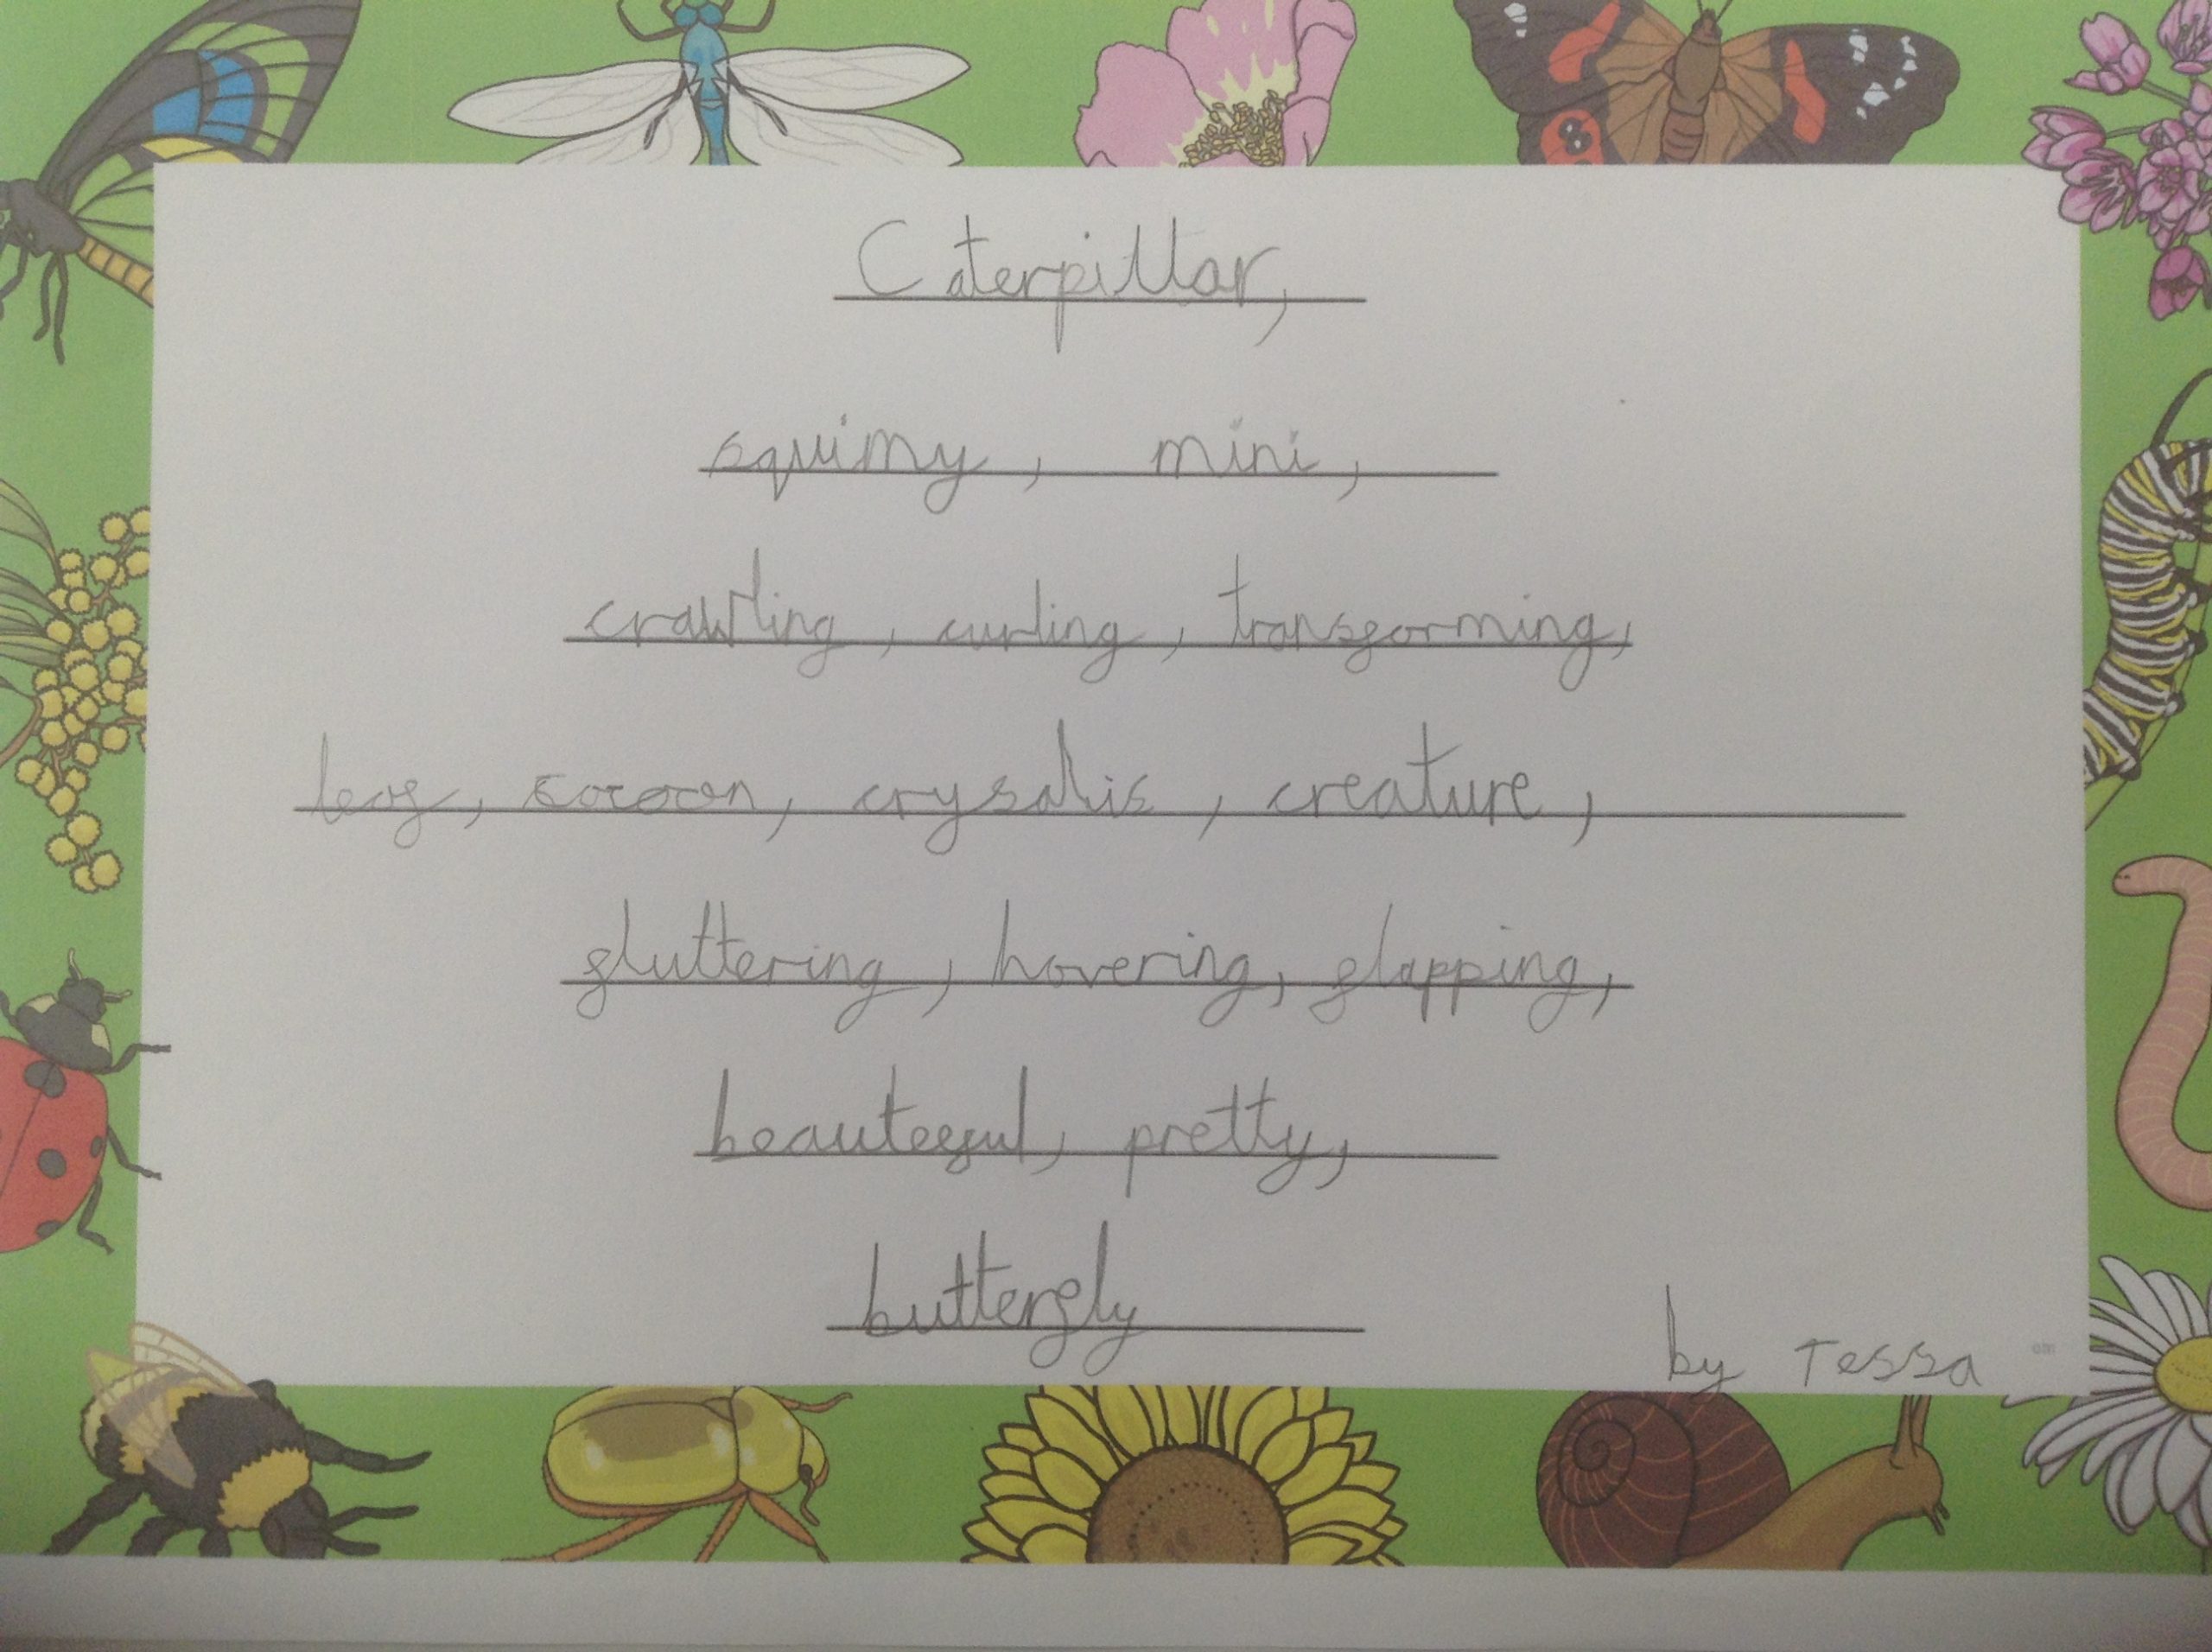 Caterpillar,
squimy, mini,
crawling, curling, transforming,
leaf, cocoon, crysalis, creature,
fluttering, hovering, flapping,
beauteeful, pretty,
butterfly
by Tessa